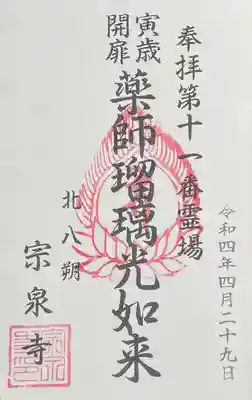 奉拝第十一番霊場
寅歳開扉
薬師瑠璃光如来
北八朔
宗泉寺
令和四年四月二十九日